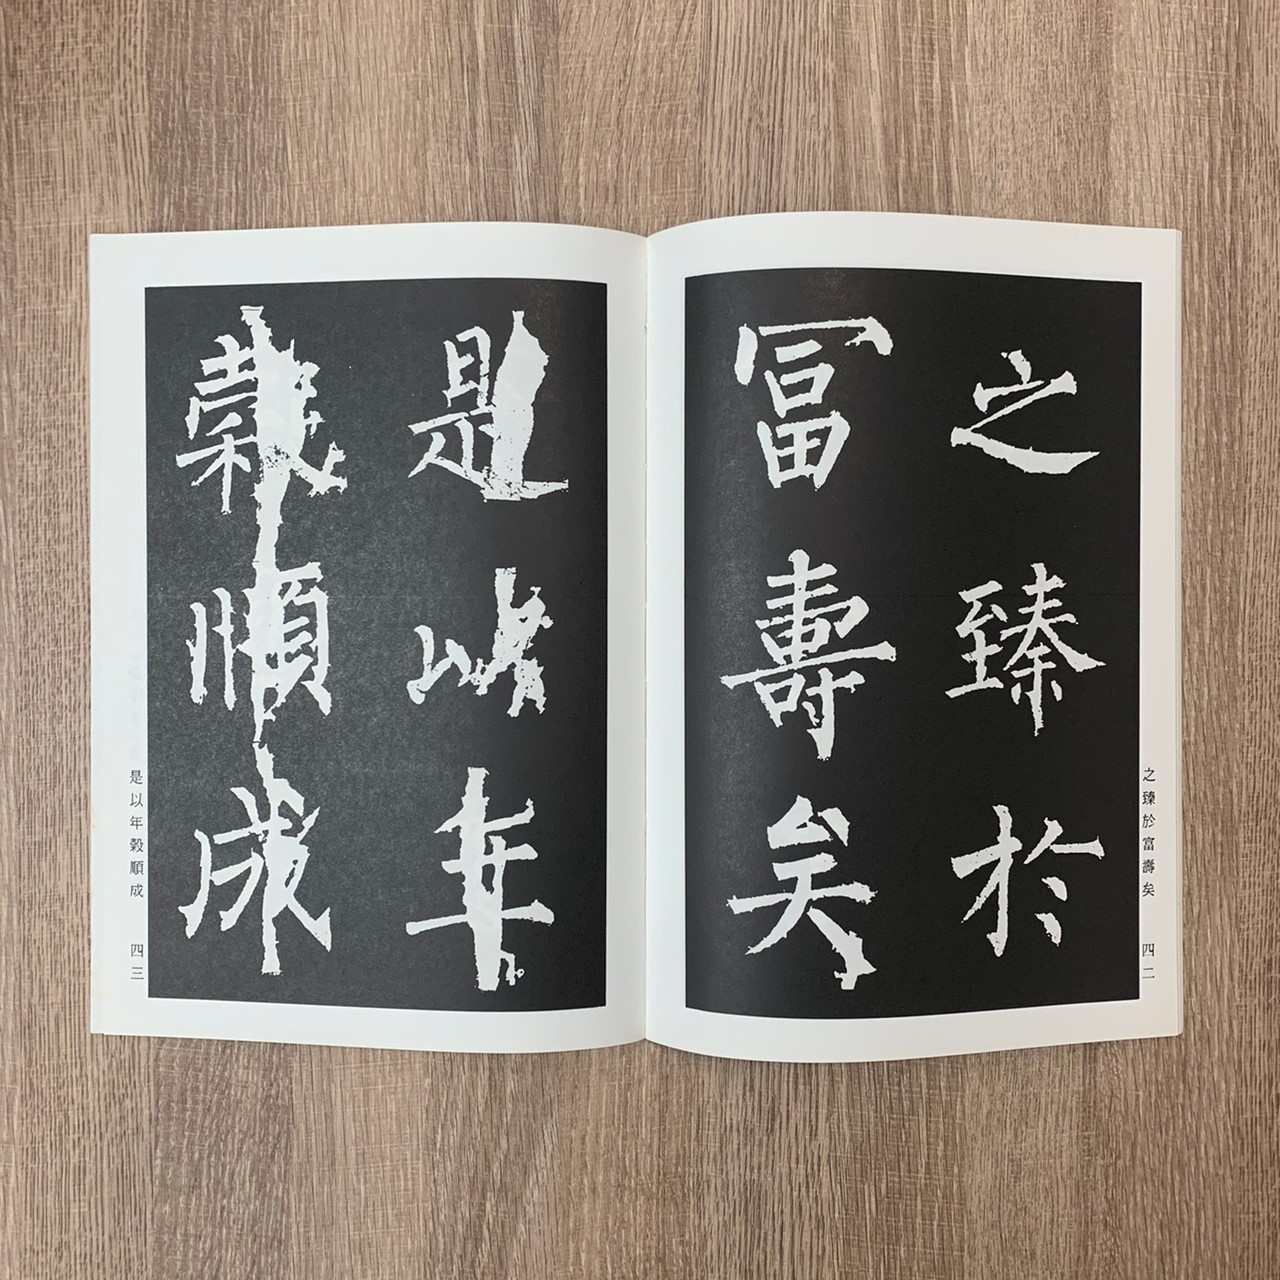 之臻於
冨壽矣
之臻於富壽矣
四二
是以年
穀順成
是以年穀順成
四三